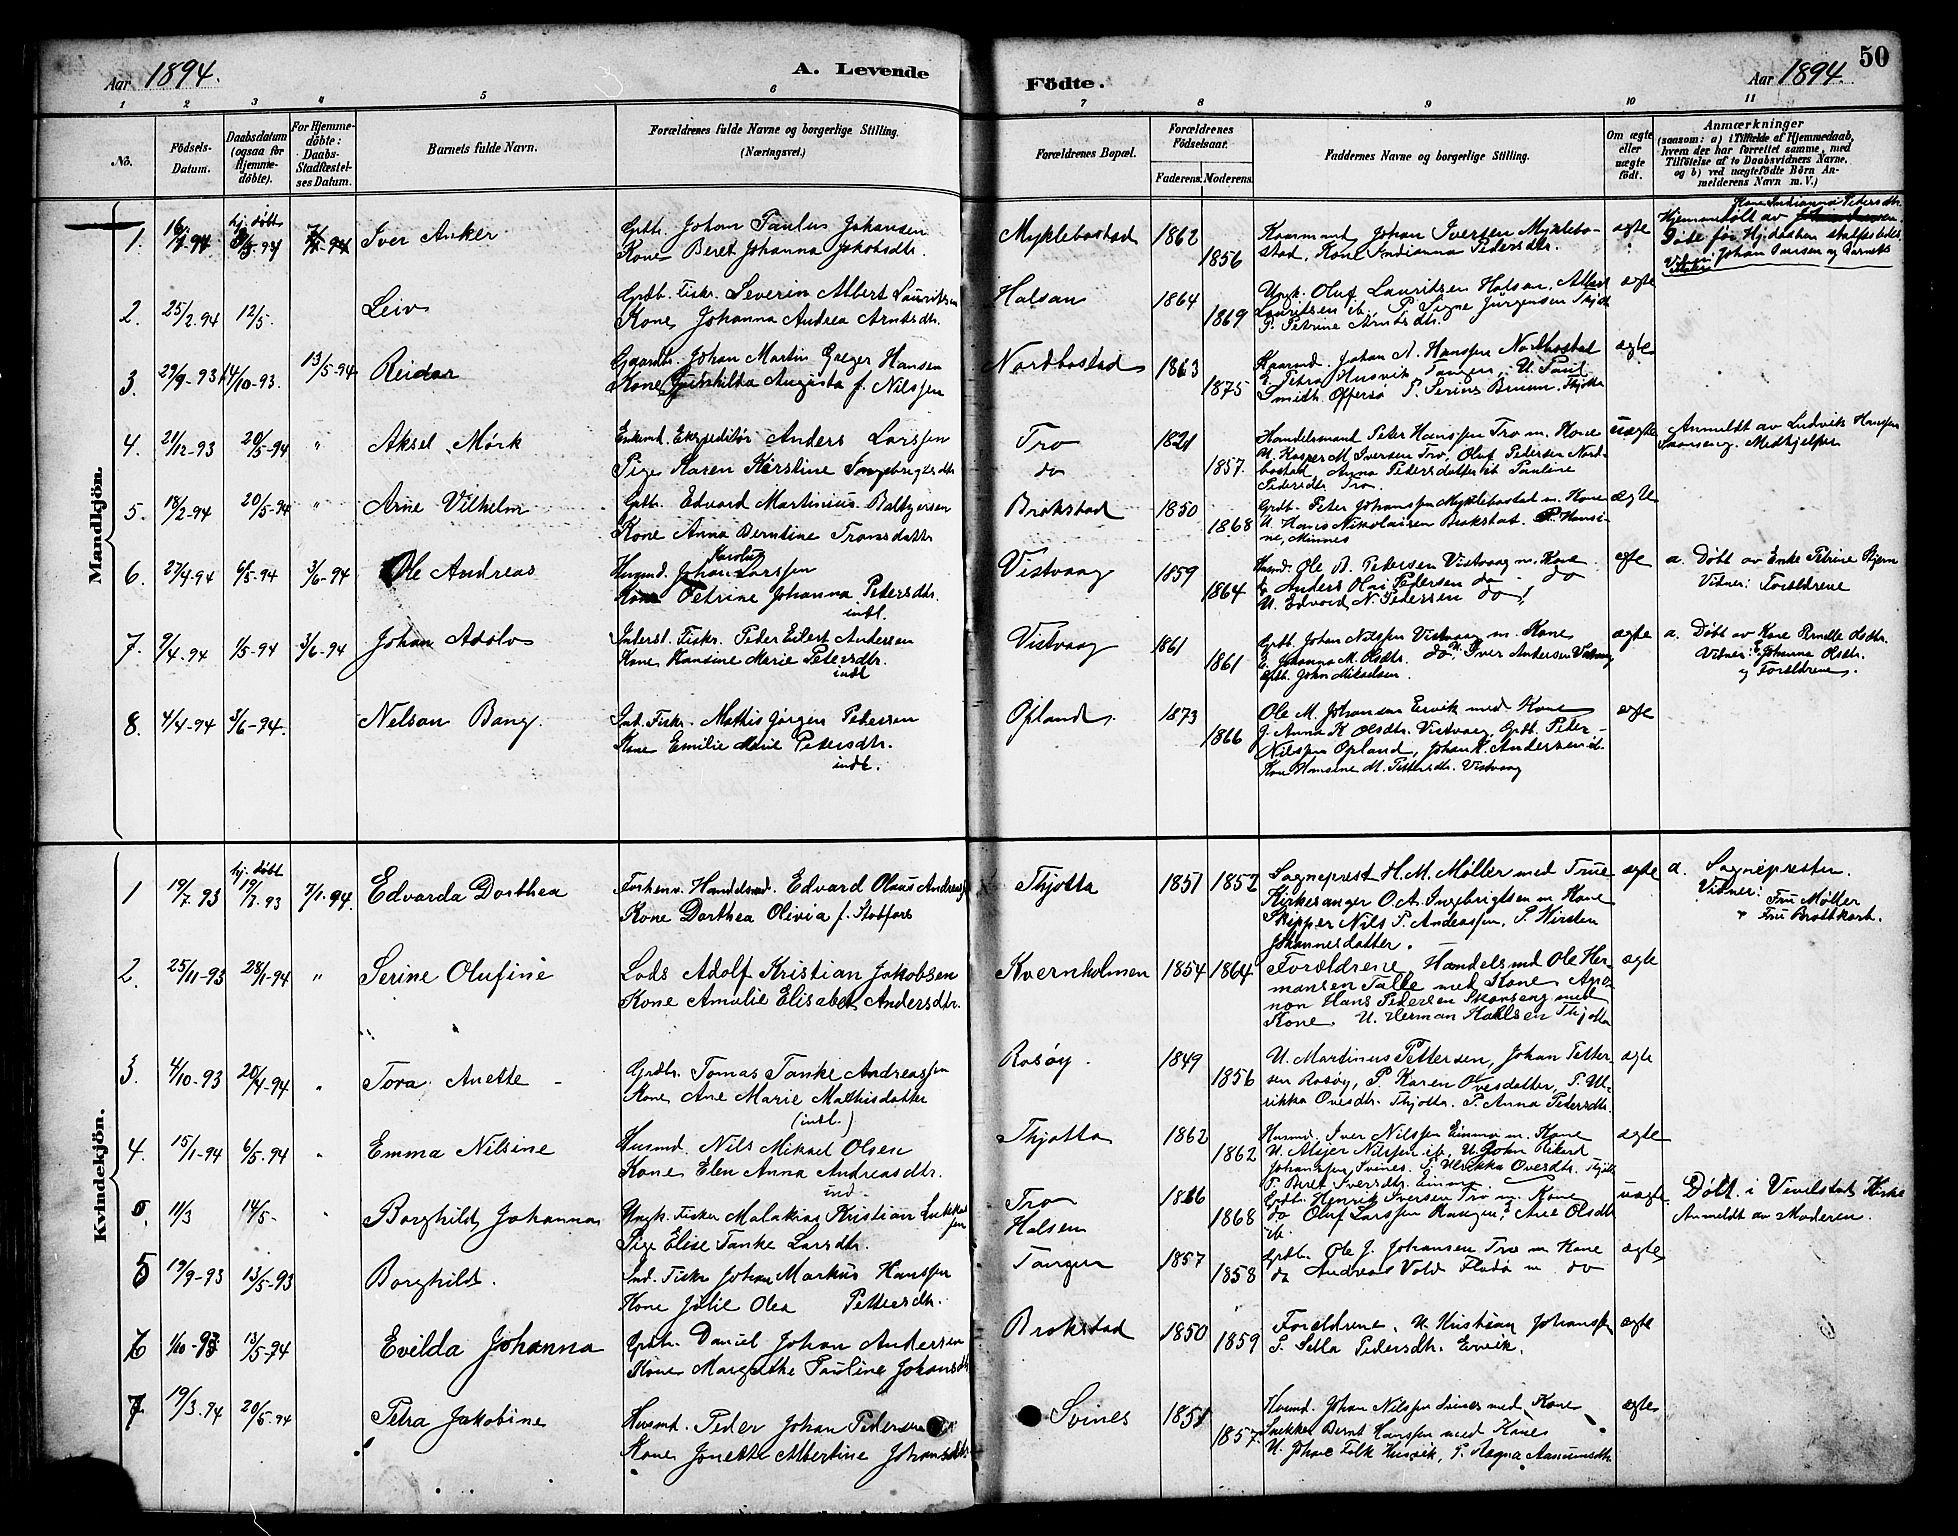 Aar 1894.
A. Levende
Födte.
Aar 1894.
50
1 2 3 4 5 6 7 8 9 10 11
No.
Födsels-
Datum.
Daabsdatum
(ogsaa for
Hjemme-
döbte).
For Hjemme-
döbte:
Daabs-
Stadfæstel-
ses Datum.
Barnets fulde Navn.
Forældrenes fulde Navne og borgerlige Stilling.
(Næringsvei.)
Forældrenes Bopæl.
Forældrenes
Födselsaar.
Faderens. Moderens.
Faddernes Navne og borgerlige Stilling.
Om ægte
eller
uægte
födt.
Anmærkninger
(saasom: a) i Tilfælde af Hjemmedaab,
hvem der har forrettet samme, med
Tilföielse af to Daabsvidners Navne,
og b) ved uægtefödte Börn An-
melderens Navn m. V.)
Mandkjön.
1. Iver Anker
Grdb. Johan Paulus Johansen
Kone Beret Johanna Jakobsdtr.
Myklebostad 1862
1856
Kaarmand Johan Iversen Myklebo-
stad, Kone Indianna Pedersdtr.
ægte
Kone Indianna Pedersdtr.
Hjemmedøbt av
2. 25/2.94 12/5. Leiv
Grdb. Fiskr. Severin Albert Lauritsen
Kone Johanna Andrea Arntsdtr.
Halsan 1864
1869
Ungk. Oluf Lauritsen Halsan,
Lauritsen ib. P. Signe Jürgensen
P. Petrine Arntsdtr.
ægte
3. 29/9-93 14/10-93. 13/5-94 Reidar
Gaardbr. Johan Martin Hansen
Kone Augusta f. Nilssen
Nordbostad 1863
1875
Kaarmd. Johan N. Hanssen Nordbostad
Petra Husvik Tangen, U. Paul
Smith Offersø P. Serine Bruun, Thjøtta
ægte
4. 21/12-93 20/5-94 " Aksel Mørk
Enkemd. Ekspeditør Anders Larssen
Pige Karen Kirstine Ingebrigtsdtr
Tro
do
1821
1857.
Handelsmand Peter Hanssen Tro m. Kone
U. Kasper M. Iversen Tro, Oluf Petersen Nord-
bostad, Anna Pedersdatter ib Pauline
Pedersdtr Tro.
uægte
Anmeldt av Ludvik Hanssen
Medhjelper
5. 18/2-94 20/5-94 " Arne Vilhelm
Grdb. Edvard Martinius Baltzersen
Kone Anna Berntine Tromsdatter
Brokstad 1850
1868
Grdb. Peter Johanssen Myklebostad m. Kone
U. Hans Nikolaisen Brokstat. P. Hansi-
ne, Minnes
ægte
6. 27/4-94 6/5-94 3/6-94 Ole Andreas
Husmd. Johan Larssen
Kone Petrine Johanna Petersdtr.
indl.
Vistvaag 1859
1864
Husmd. Ole A. Petersen Vistvaag m. Kone
Anders Olai Pedersen do - do
U. Edvard N. Pedersen do
ægte
a. Døbt av Enke Petrine
Vidner: Forældrene
7. 9/4-94 1/5-94 3/6-94 Johan Adolv
Inderst. Fiskr. Peder Eilert Andersen
Kone Hansine Marie Petersdtr.
indl
Vistvaag 1861
1861
Grdb. Johan Nilssen Vistvaag m. Kone
E. Johanna M. Olsdtr. do, Iver Andersen Vistvaag
Grdb. John Mikaelsen.
ægte
a. Døbt av Kone Pernelle Olsdtr.
Vidner: E. Johanna Olsdtr.
og Forældrene.
8. 4/4-94 3/6-94. Nelsan Bang.
Ind. Fiskr. Mathis Jørgen Petersen
Kone Emilie Marie Petersdtr.
indl.
Opland. 1873
1866
Ole M. Johansen Ervik med Kone
J. Anna K Olsdtr. Vistvaag, Grdb. Peter
Nilssen Opland, Johan K. Andersen
Kone Hansine M. Pettersdtr. Vistvaag
ægte
Kvindekjön.
1 19/7.93 hj. døbt 19/7.93 7/1.94. Edvarda Dorthea
Forhenv. Handelsmd. Edvard Olaus Andreass
Kone Dorthea Olivia f. Stokfors
Thjøtta 1851 1852
Sogneprest H. M. Møller med Frue
Kirkesanger O. A. Ingebrigtsen m Kone
Skipper Nils P. Andreassen, P. Kirsten
Johannesdatter.
ægte
a. Sognepresten.
Vidner: Fru Møller
+ Fru Brottkorb.
2. 25/11-93 28/1-94 " Serine Olufine
Lods Adolf Kristian Jakobsen
Kone Amalie Elisabet Andersdtr.
Kvernholmen 1854 1864
Forældrene, Handelsmd Ole Her-
mansen Kone
Hans Pedersen Skonseng med
Kone. U. Herman Karlsen Thjøtta
ægte
3. 4/10-93 20/4-94 " Tora Anette
Grdbr. Tomas Tanke Andreassen
Kone Ane Marie Mathisdatter
(indl.)
Rosøy. 1849
1856
U. Martinus Pettersen, Johan Petter-
sen Rosøy, P. Karen Ovesdatter, P. Ul-
rikka Ovesdtr. Thjøtta. P. Anna Pedersdtr.
ægte
4. 15/1-94 6/5.94 " Emma Nilsine
Husmd. Nils Mikael Olsen
Kone Elen Anna Andreasdtr.
ind.
Thjøtta 1862
1862
Husmd. Iver Nilssen Einmo m. Kone
U. Meyer Nilssen ib, U. John Rikard
Johanssen, Svines. P. Ulrikka Ovesdtr.
P. Beret Iversdtr. Einmo.
ægte
5. 11/3 14/5- Borghild Johanna
Ungk. Fisker Malakias Kristian
Pige Elise Tanke Larsdtr.
Tro
Halsen
1866
1868
Grdb. Henrik Iversen Tro m. Kone
do Oluf Larssen Ane Olsdtr
ib.
uægte
Døbt i Vevilstat Kirke
Anmeldt av Moderen.
5 19/9-93 13/5-93 Borghild.
Ind. Fiskr Johan Markus Hanssen
Kone Julie Olea Pettersdtr.
Tangen 1857
1858
Grdb. Ole J. Johansen Tro m Kone
do Andreas Vold Flada m. do
ægte
6 1/10-93 13/5-94 Evilda Johanna
Grdb. Daniel Johan Andersen
Kone Margrethe Pauline Johansdtr
Brokstad 1850
1859
Forældrene, U. Kristian Johanss
P. Sella Pedersdtr. Ervik.
ægte
7 19/3.94 20/5.94 Petra Jakobine
Husmd. Peder Johan Pedersen
Kone Jonette Albertine Johansdtr
Svines 1851
1857.
Husmd. Johan Nilssen Svines med Kone
Snekker Bernt Hanssen med Kone
U. Johan Falk Husvik, P. Ragna
ægte